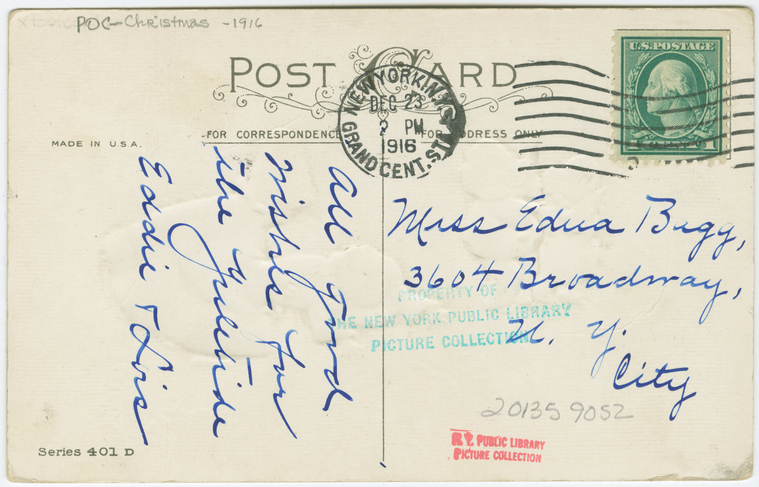 POC-Christmas -1916
POST CARD
NEW YORK, N.Y.
DEC 23
2 PM
1916
GRAND CENT. STA.
U.S. POSTAGE
1
FOR CORRESPONDENCE
FOR ADDRESS ONLY
MADE IN U.S.A.
All Good
Wishes for
the Yuletide
Eddie & Lois
Miss Edna Begg,
3604 Broadway,
N. Y.
City
PROPERTY OF
THE NEW YORK PUBLIC LIBRARY
PICTURE COLLECTION
20135 9052
N.Y. PUBLIC LIBRARY
PICTURE COLLECTION
Series 401 D